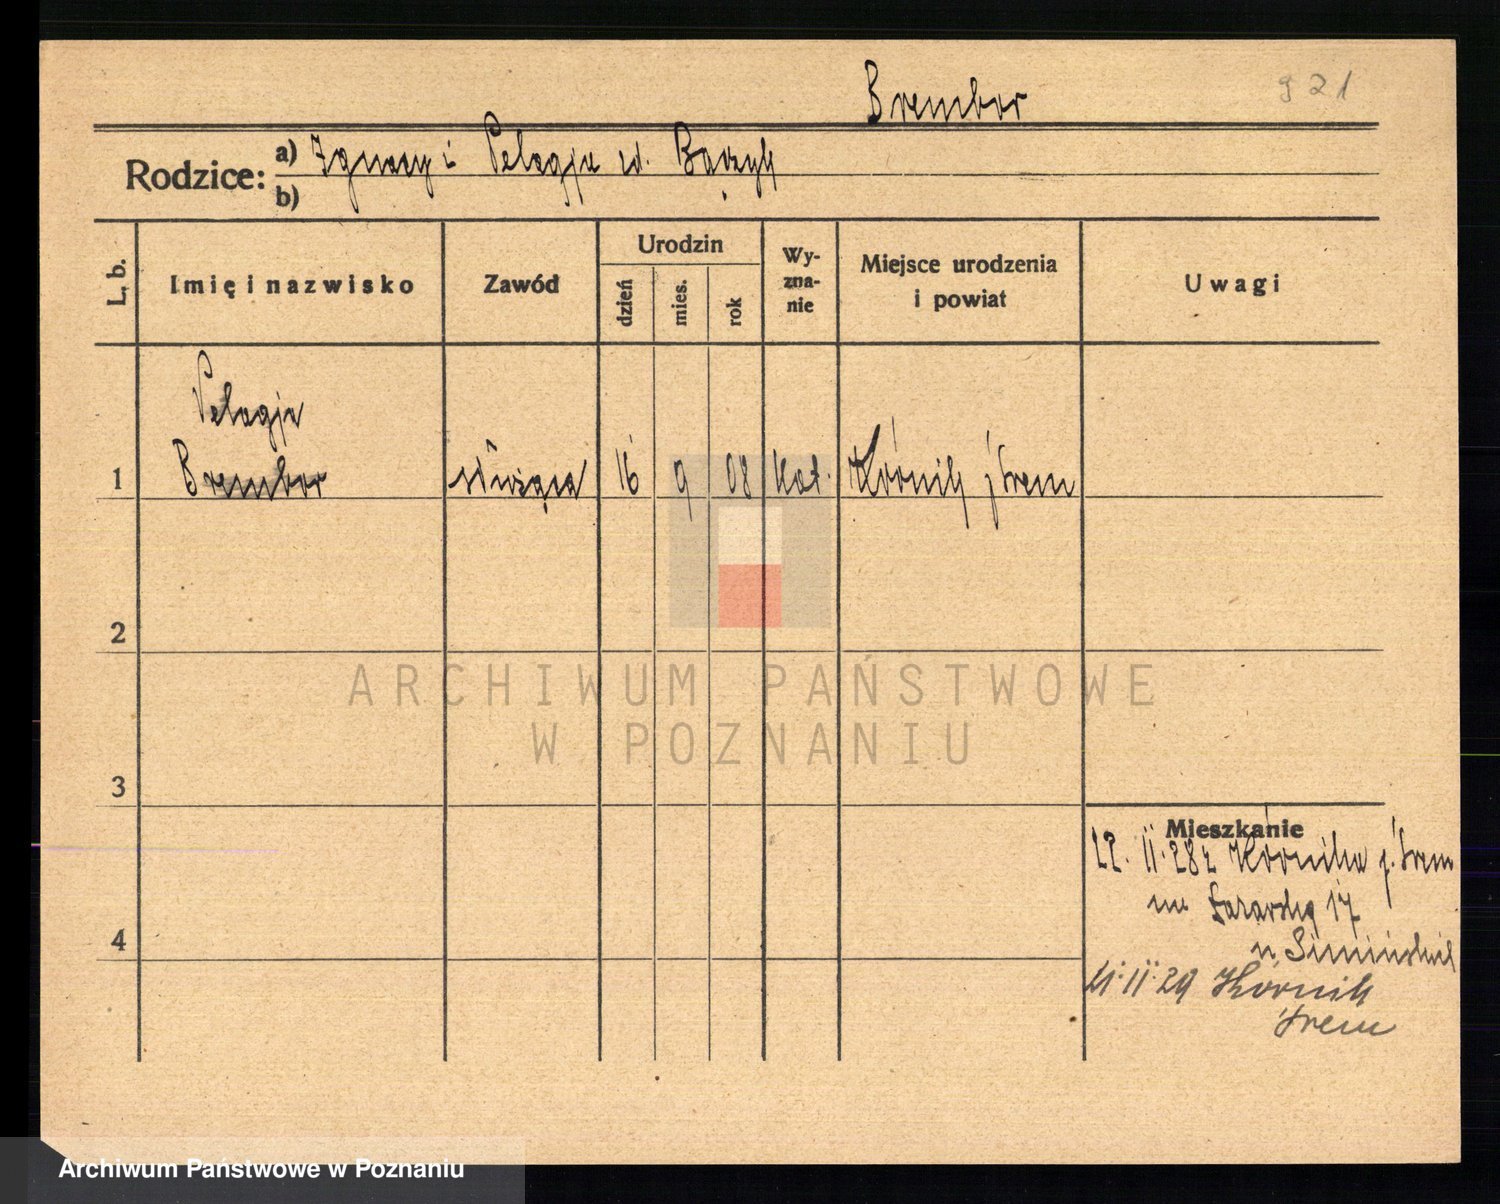 Brembor
921
Rodzice: a) Ignacy i Pelagja z d. Bączyk
b)
L. b.
Imię i nazwisko
Zawód
Urodzin
dzień
mies.
rok
Wy-
zna-
nie
Miejsce urodzenia
i powiat
Uwagi
Pelagja
1 Brembor służąca 16 9 08 kat. Kórnik p. Śrem
2
3
4
Mieszkanie
22. II. 28 z Kórnika p. Śrem
na 17
u
21. II. 29 Kórnik
Śrem
ARCHIWUM PAŃSTWOWE
W POZNANIU
Archiwum Państwowe w Poznaniu